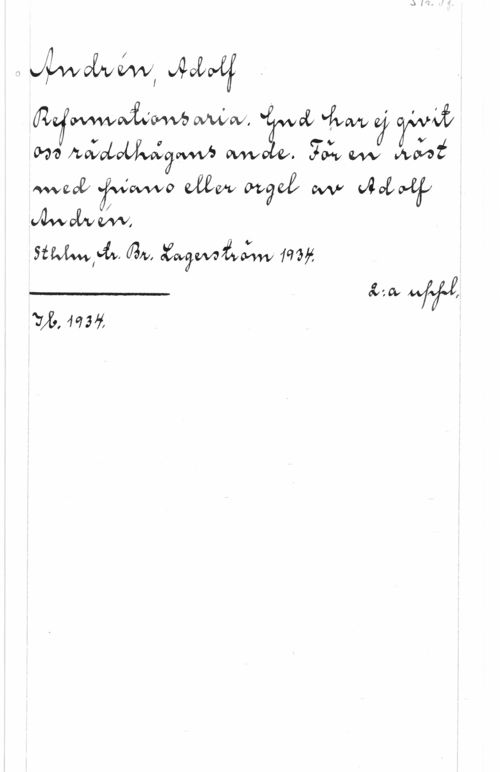 Andrén, Adolf
Reformationsaria. Gud har ej givit
oss räddhågans ande. För en röst
med piano eller orgel av Adolf
Andrén.
Sthlm, tr. Br. Lagerström 1934.
2:a uppl.
1934.